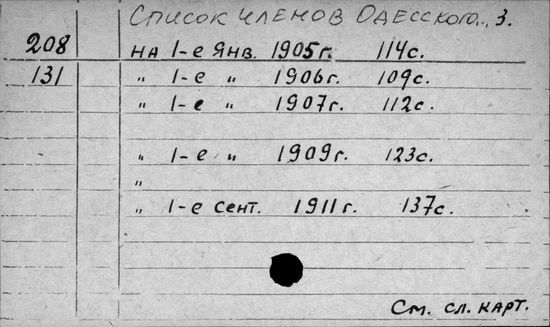 Список членов Одесского.. 3.
208 на 1-е янв. 1905г. 114с.
131 " 1-е " 1906г. 109с.
" 1-е " 1907г. 112с.
" 1-е " 1909г. 123с.
"
" 1-е сент. 1911г. 137с.
См. сл. карт.